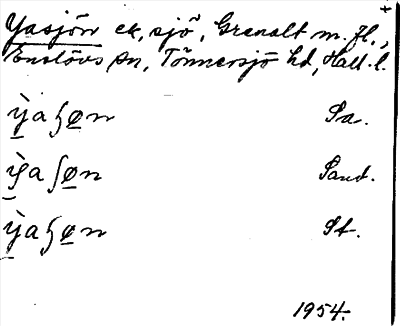 Yasjön ek, sjö, Grenalt m. fl.,
Enslövs sn, Tönnersjö hd, Hall. l.
ỳaʃøn Sa.
ỳaʃøn Sand.
ỳaʃøn St.
1954.